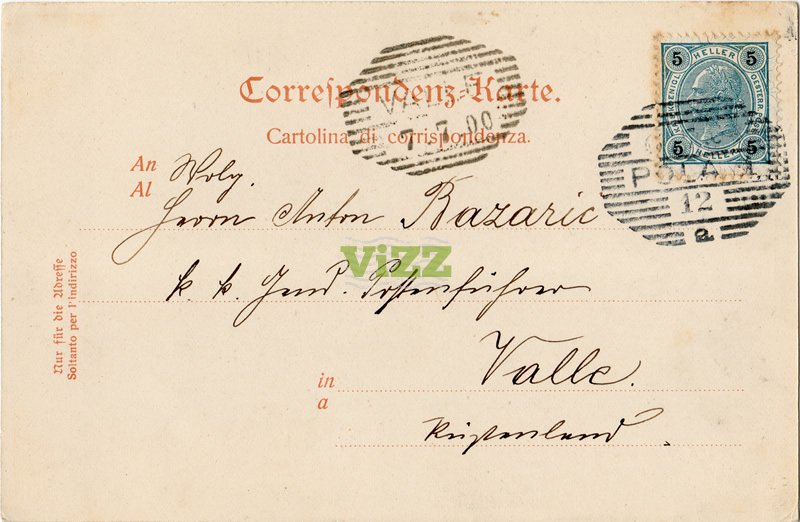 Correspondenz-Karte.
Cartolina di corrispondenza.
An
Al
Wolg.
Herrn Anton Bazaric
k. k. Gend. Postenführer
in
a
Valle.
Küstenland
Nur für die Adresse
Soltanto per l'indirizzo
VALLE
7.7.00
5 HELLER 5
5 HELLER 5
POLA 1
12
a
ViZZ